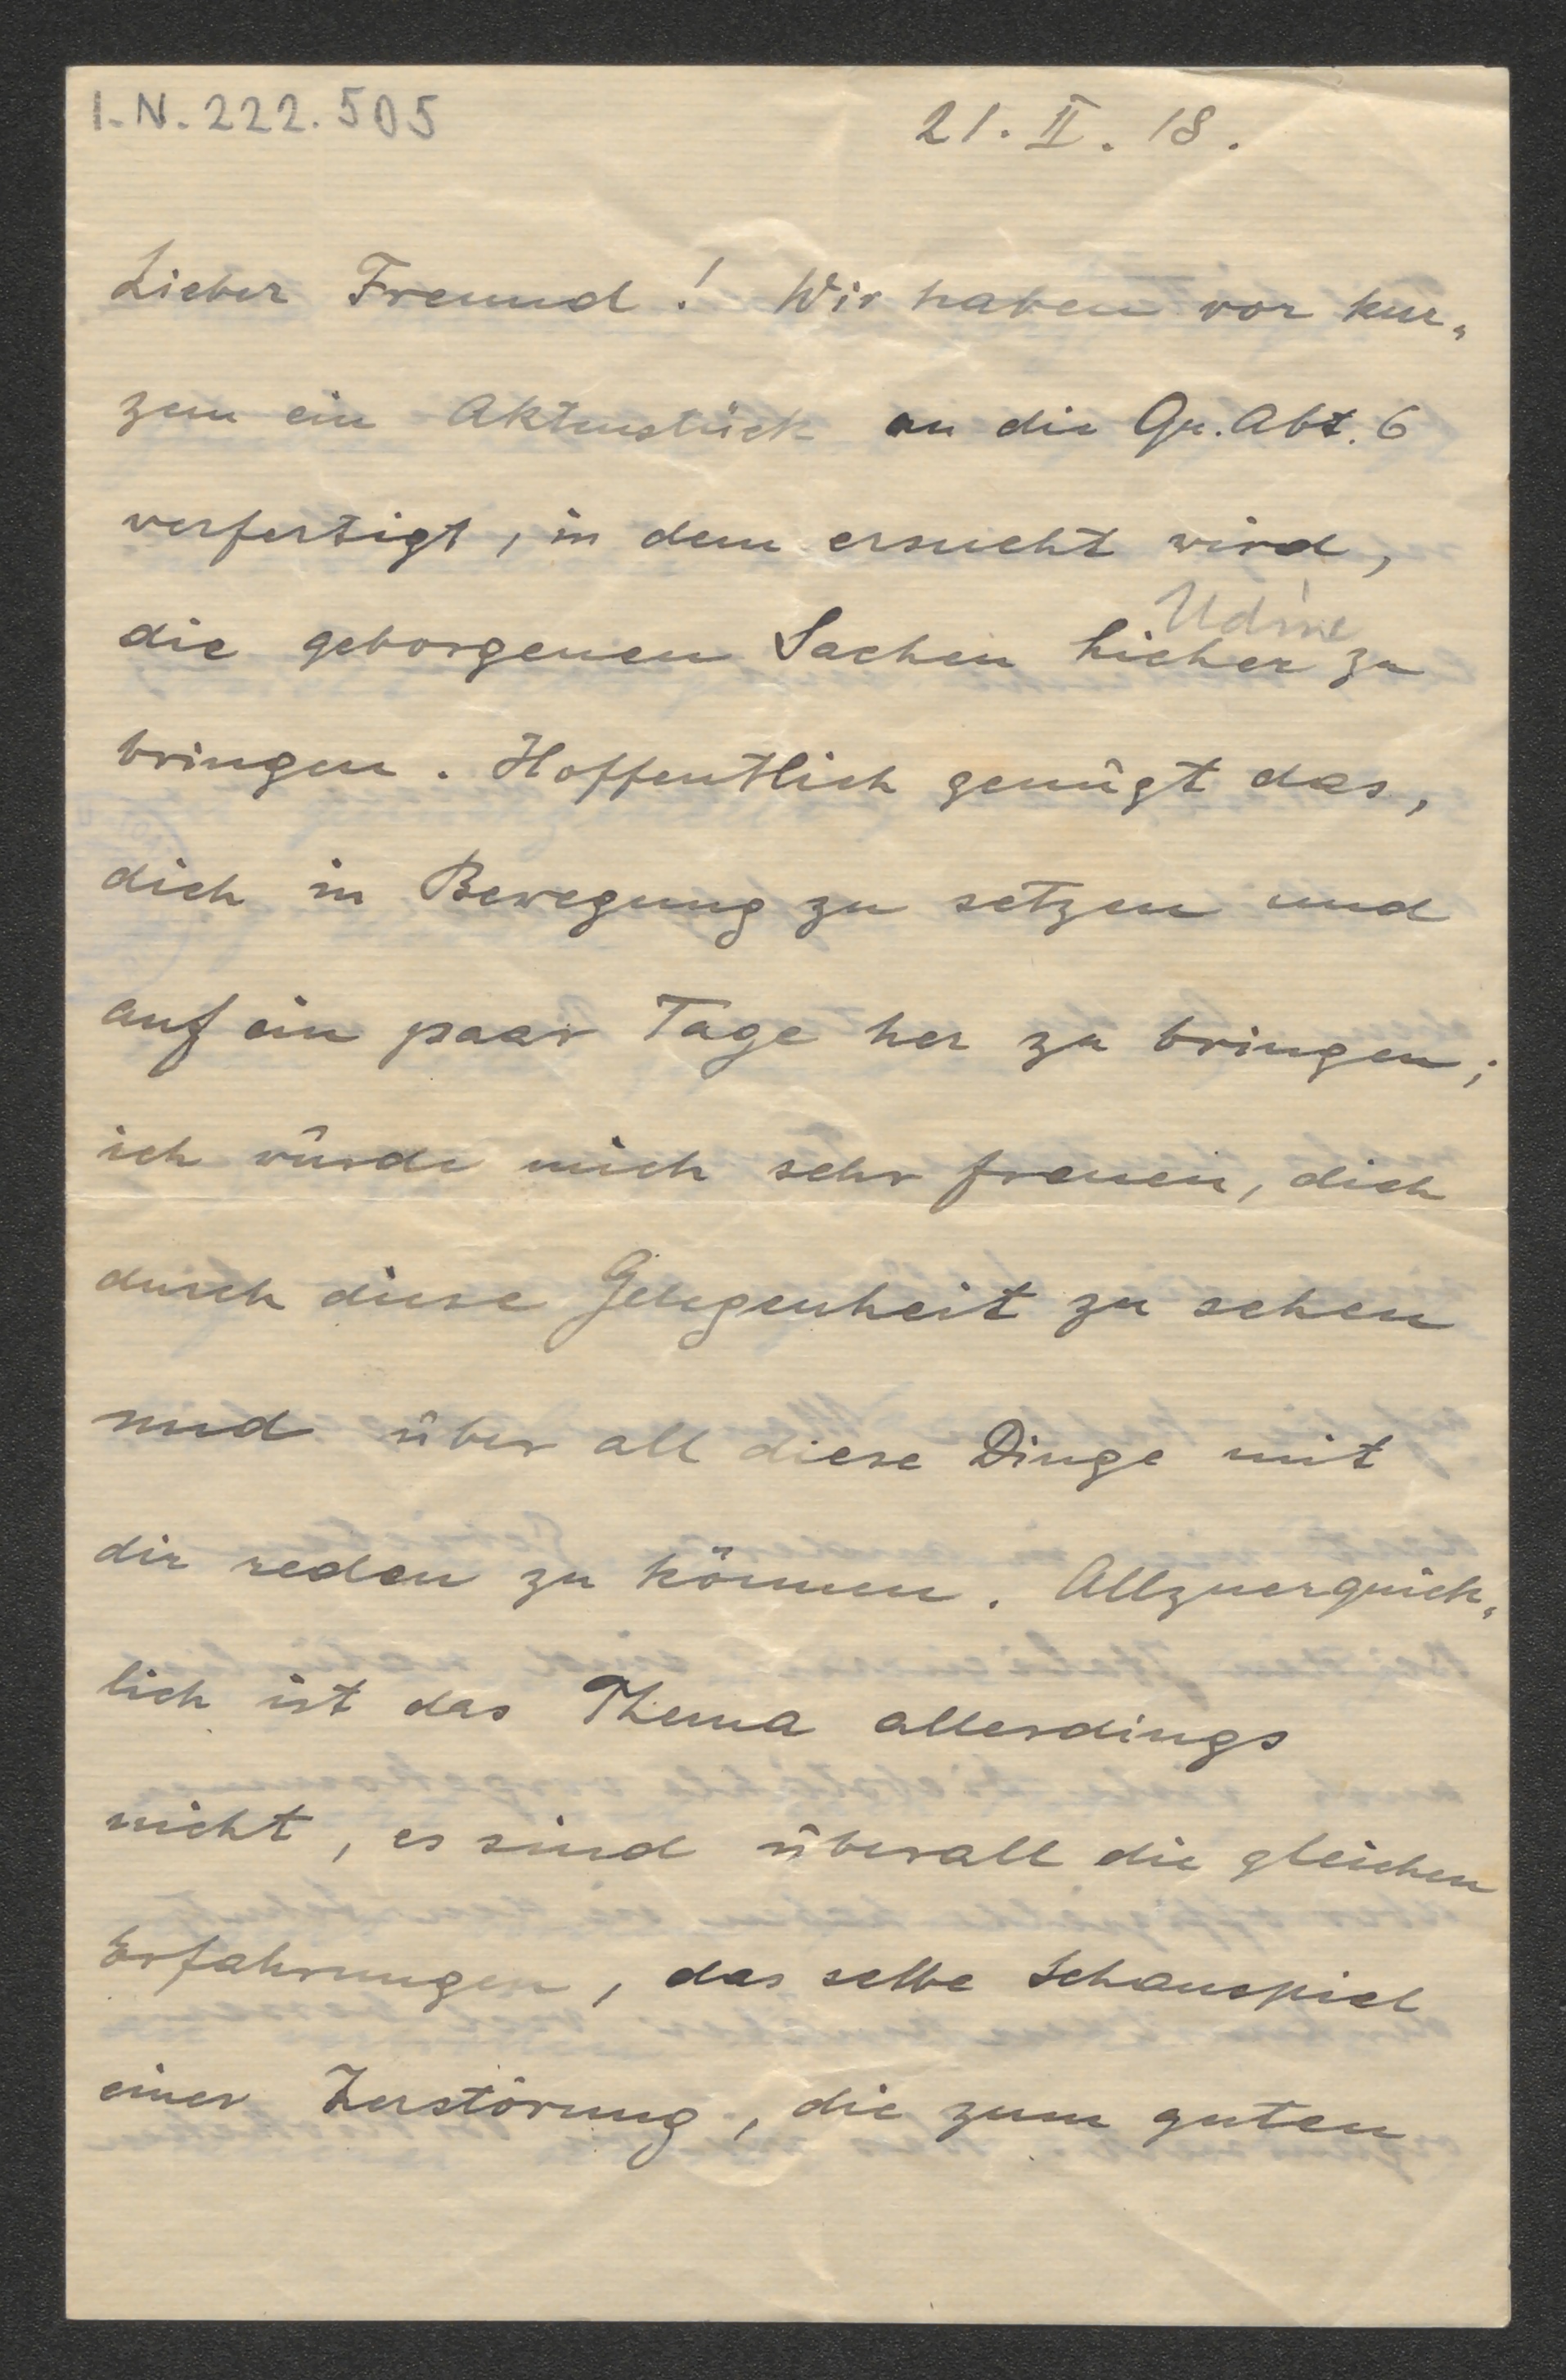 I.N. 222.505
21. II. 18.
Lieber Freund! Wir haben vor kur-
zem ein Aktenstück an die Qu. Abt. 6
verfertigt, in dem ersucht wird,
Udine
die geborgenen Sachen hieher zu
bringen. Hoffentlich genügt das,
dich in Bewegung zu setzen und
auf ein paar Tage her zu bringen;
ich würde mich sehr freuen, dich
durch diese Gelegenheit zu sehen
und über all diese Dinge mit
dir reden zu können. Allzuerquick-
lich ist das Thema allerdings
nicht, es sind überall die gleichen
Erfahrungen, das selbe Schauspiel
einer Zerstörung, die zum guten